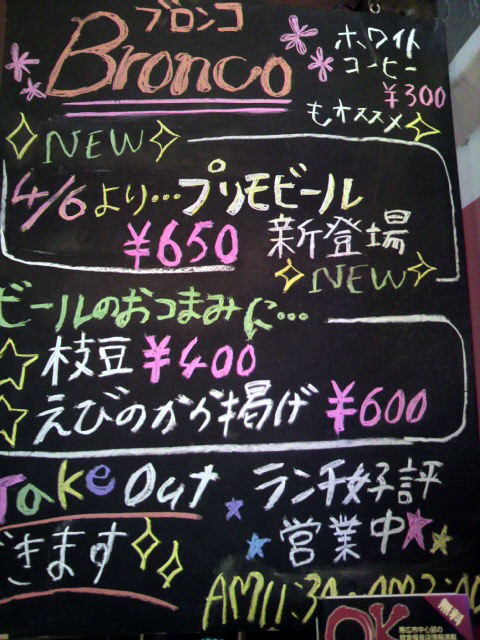 ブロンコ
Bronco
ホワイト
コーヒー
¥300
もオススメ
NEW
4/6より…プリモビール
¥650 新登場
NEW
ビールのおつまみに…
枝豆 ¥400
えびのから揚げ ¥600
Take Out
できます
ランチ好評
営業中
AM11:30~
無料
OK